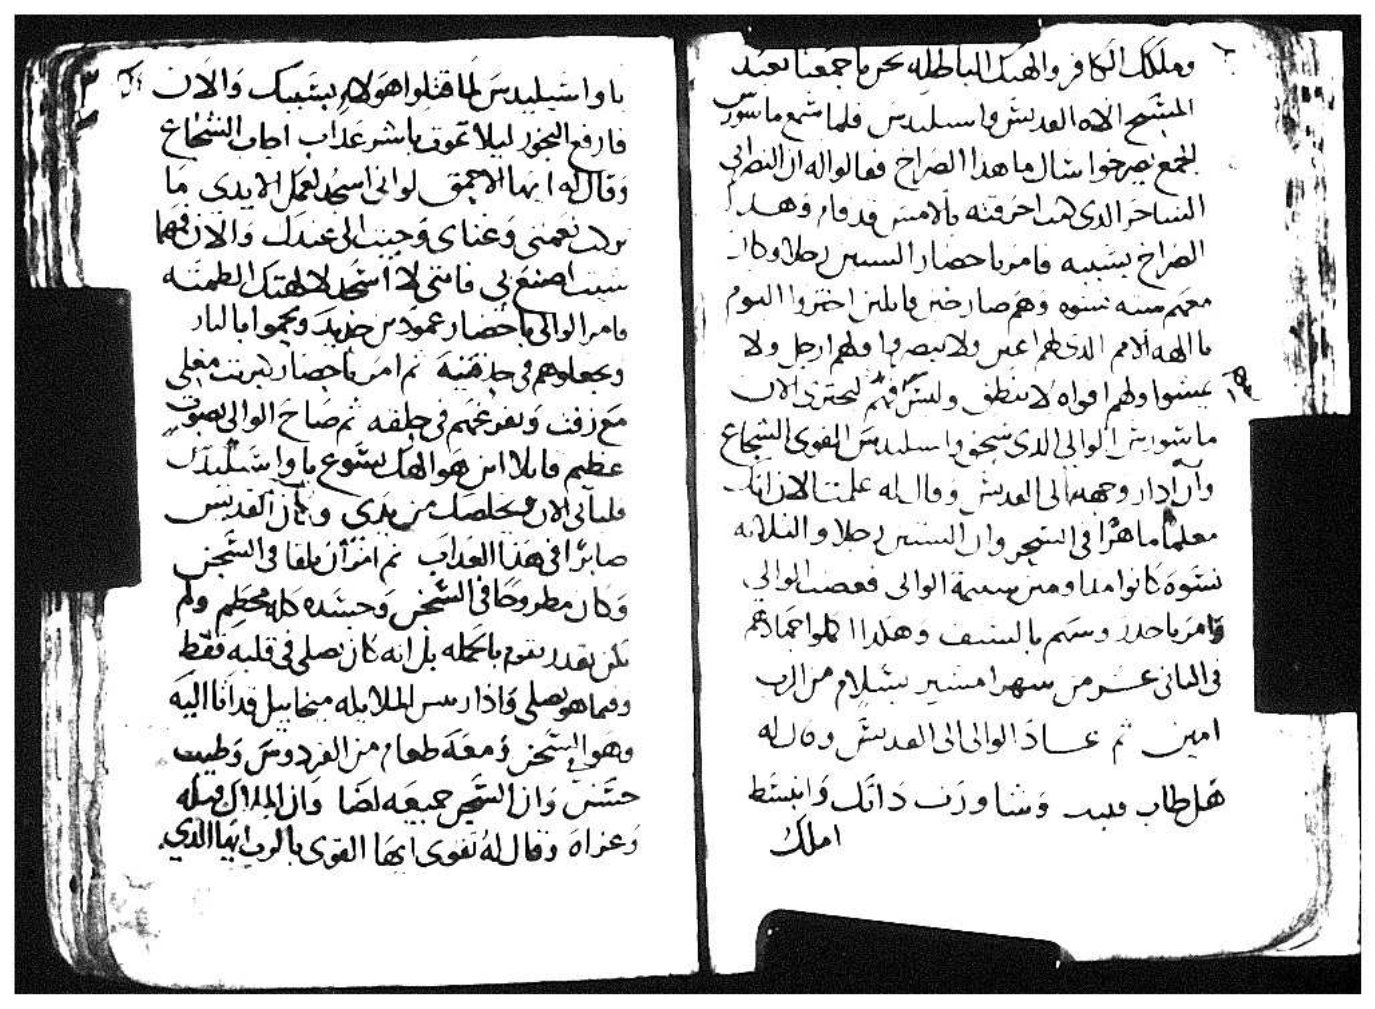 وملكك الكافر والهتك الباطله نحن يا جمعنا نعبد
المسيح الاله القديس واسيليدس فلما سمع ماسورس
الجمع يصرخوا سال ما هذا الصراخ فقالوا له ان النصراني
الساحر الذى احرقته بالامس قد قام وهدا
الصراخ بسببه فامر باحضار الستين رجلا وكان
معهم ستة نسوه وهم صارخين قايلين اختزوا اليوم
يا الهه الامم الذى لهم اعين ولا تبصر ولهم ارجل ولا
يمشوا ولهم افواه لا تنطق وليس لتختزى الان
ماسورس الوالى الذى واسيليدس القوى الشجاع
وان ادار وجهه الى القديس وقال له علمنا الان انك
معلما ماهرا فى السحر وان الستين رجلا والثلاثه
نسوة كانوا من الوالى فغضب الوالي
وامر باخذ روسهم بالسيف وهكذا اكملوا جهادهم
فى الثانى عشر من شهر امشير بسلام من الرب
امين ثم عاد الوالى الى القديس وقال له
هل طاب قلبك وشاورت ذاتك وانبسط
املك
يا واسيليدس لما قتلوا هولاء بسببك والان
فارفع البخور ليلا تموت باشر عذاب اجاب الشجاع
وقال له ايها الاحمق لو انى اسجد لعمل الايدى ما
تركت نعمتى وغناى وجيت الى عندك والان فمهما
شيت اصنع بى فاننى لا اسجد لالهتك الطمثه
فامر الوالى باحضار عمودين حديد ويحموا بالنار
ويجعلوهم فى ثم امر باحضار كبريت مغلى
مع زفت ويفرغهم فى حلقه ثم صاح الوالى بصوت
عظيم قايلا اين هو الهك يسوع يا واسيليدس
فلياتى الان ويخلصك من يدى وكان القديس
صابرا فى هذا العذاب ثم امر ان يلقا فى السجن
وكان مطروحا فى السجن وجسده كله محطم ولم
يكن يقدر يقوم بالجمله بل انه كان يصلى فى قلبه فقط
وفيما هو يصلى واذا رييس الملايكه ميخاييل قد اتا اليه
وهو فى السجن ومعه طعام من الفردوس وطيب
حسن وان السجن جميعه اضا وان الملاك قبله
وعزاه وقال له تقوى ايها القوى بالرب ايها الذي